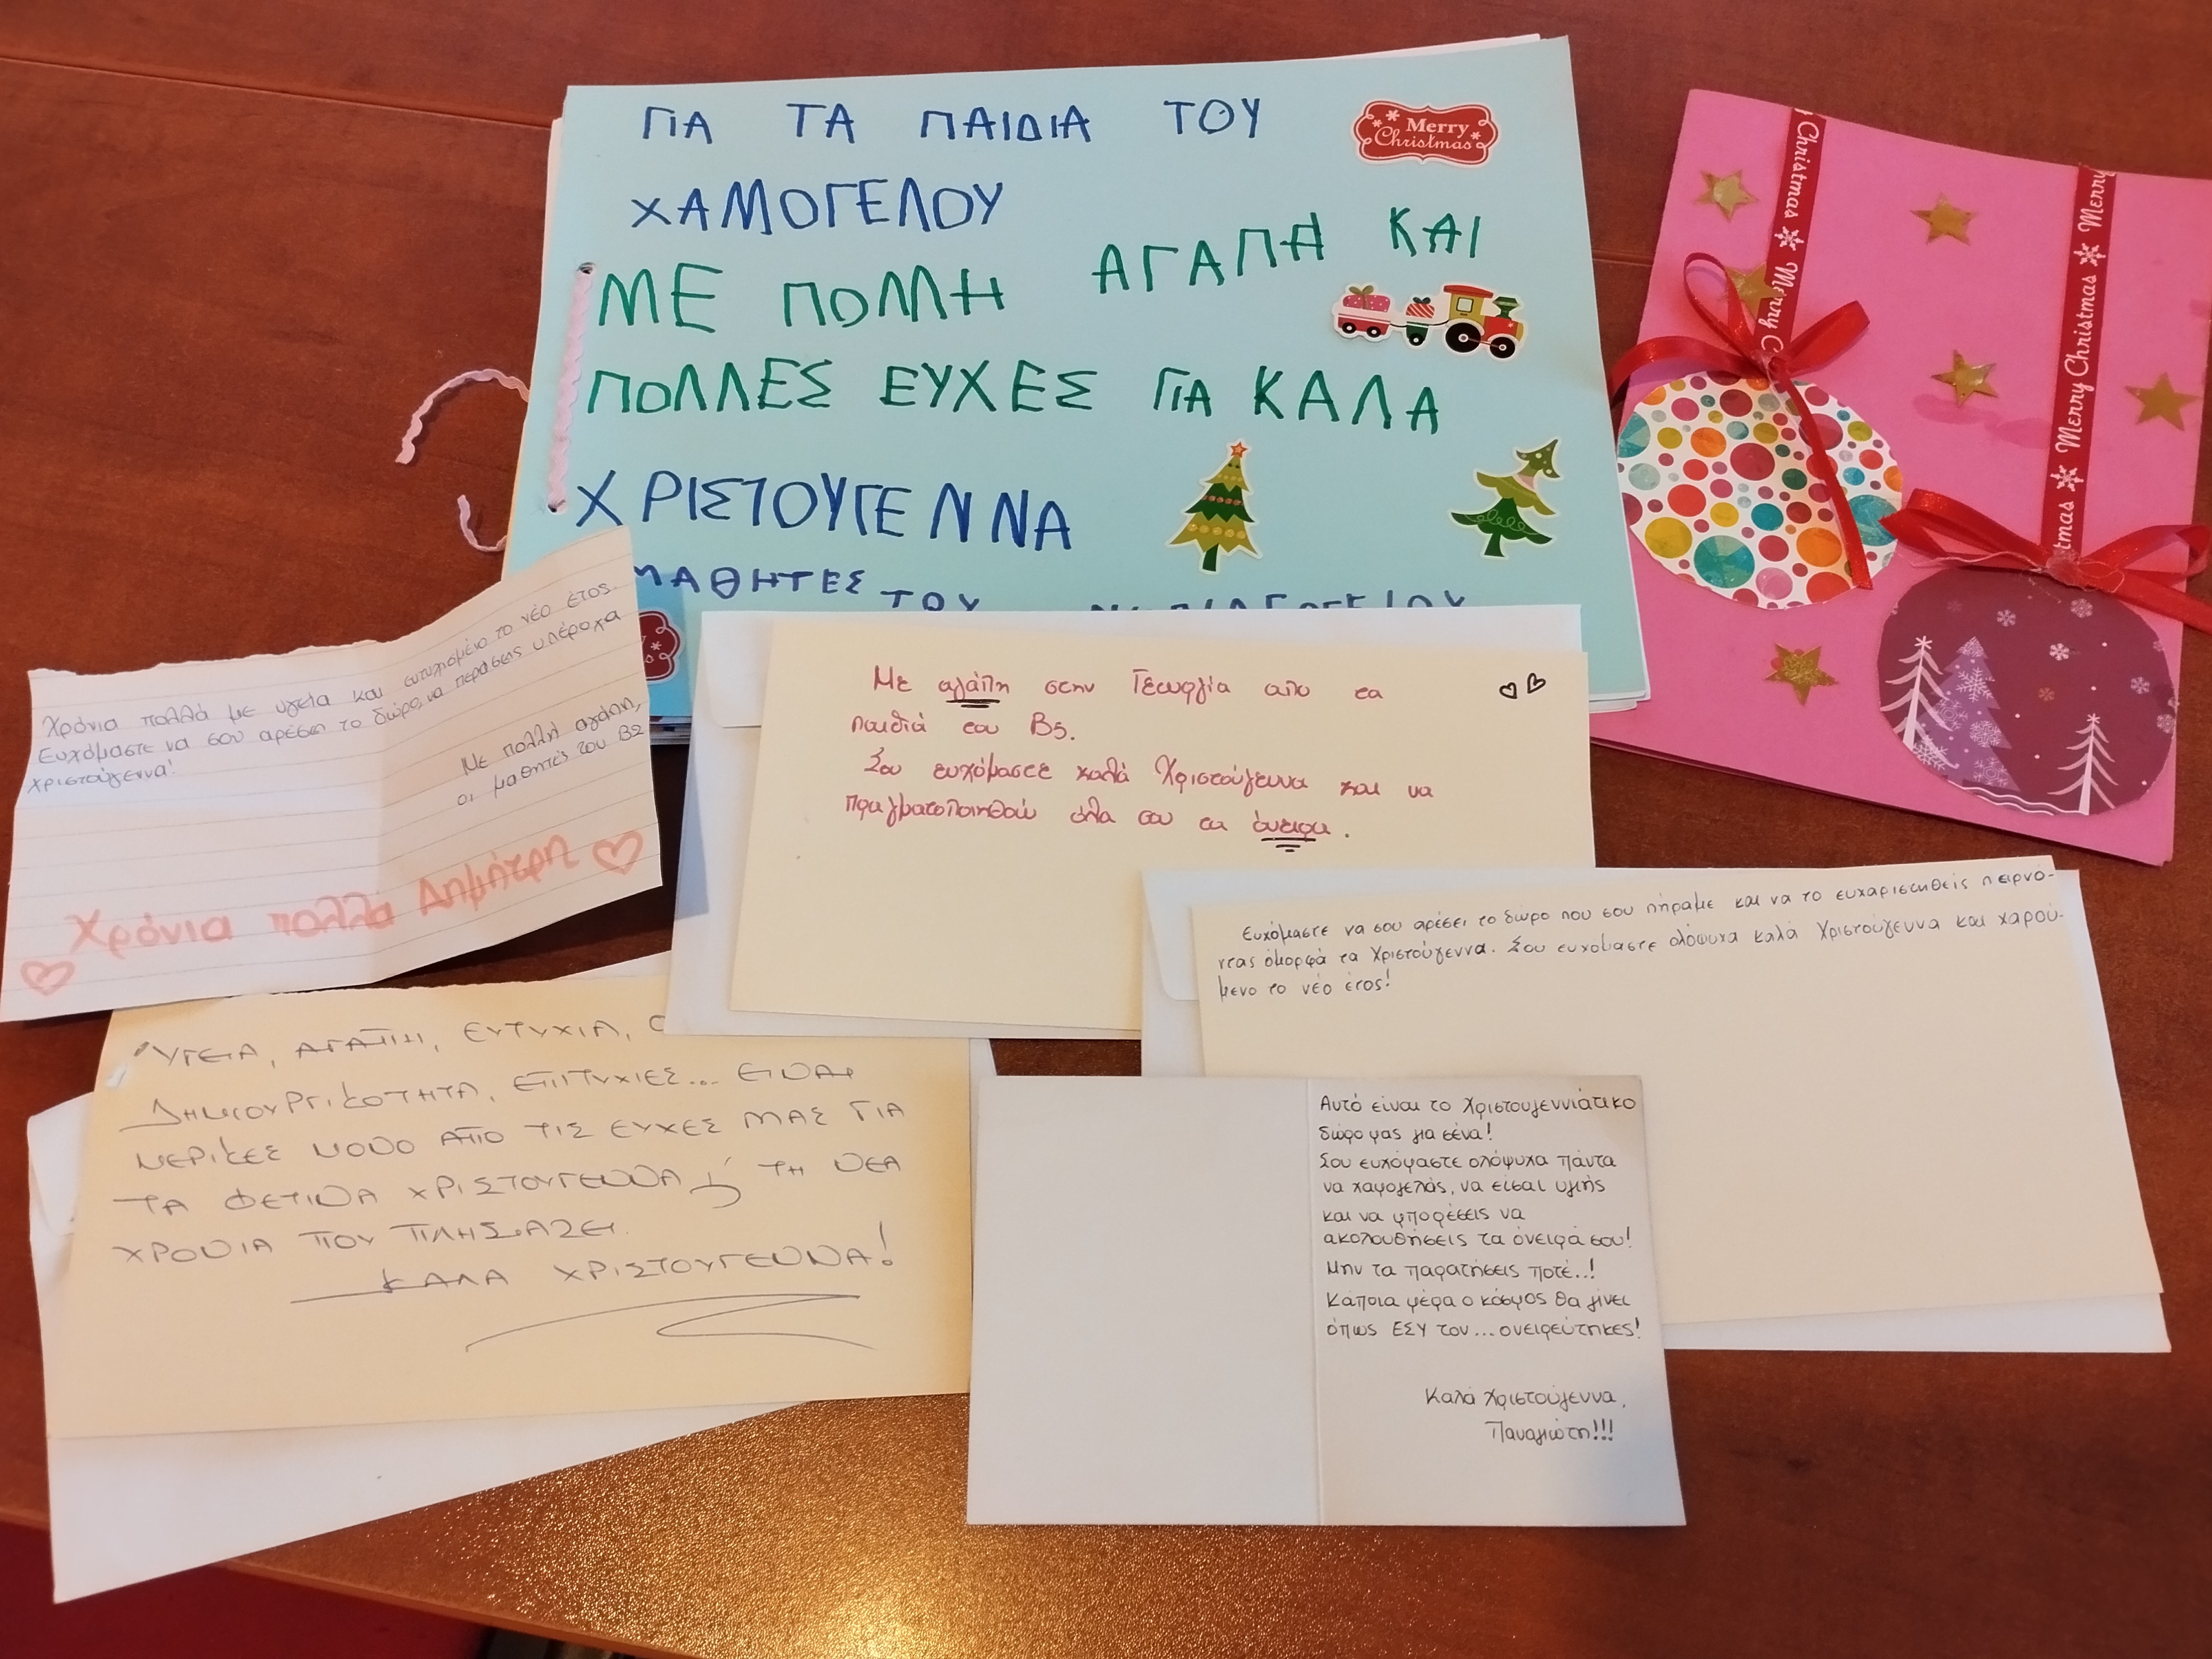 ΓΙΑ ΤΑ ΠΑΙΔΙΑ ΤΟΥ
ΧΑΜΟΓΕΛΟΥ
ΜΕ ΠΟΛΛΗ ΑΓΑΠΗ ΚΑΙ
ΠΟΛΛΕΣ ΕΥΧΕΣ ΓΙΑ ΚΑΛΑ
ΧΡΙΣΤΟΥΓΕΝΝΑ
ΜΑΘΗΤΕΣ ΤΟΥ ΝΗΠΙΑΓΩΓΕΙΟΥ
Merry
Christmas
Christmas Merry
Merry Christmas Merry
Χρόνια πολλά με υγεία και ευτυχισμένο το νέο έτος.
Ευχόμαστε να σου αρέσει το δώρο, να περάσεις υπέροχα
χριστούγεννα!
Με πολλή αγάπη,
οι μαθητές του Β2
Χρόνια πολλά Δημήτρη
Με αγάπη στην Γεωργία από τα
παιδιά του Β5.
Σου ευχόμαστε καλά Χριστούγεννα και να
πραγματοποιηθούν όλα σου τα όνειρα.
Ευχόμαστε να σου αρέσει το δώρο που σου πήραμε και να το ευχαριστηθείς περνό-
ντας όμορφα τα Χριστούγεννα. Σου ευχόμαστε ολόψυχα καλά Χριστούγεννα και χαρού-
μενο το νέο έτος!
ΥΓΕΙΑ, ΑΓΑΠΗ, ΕΥΤΥΧΙΑ,
ΔΗΜΙΟΥΡΓΙΚΟΤΗΤΑ, ΕΠΙΤΥΧΙΕΣ... ΕΙΝΑΙ
ΜΕΡΙΚΕΣ ΜΟΝΟ ΑΠΟ ΤΙΣ ΕΥΧΕΣ ΜΑΣ ΓΙΑ
ΤΑ ΦΕΤΙΝΑ ΧΡΙΣΤΟΥΓΕΝΝΑ & ΤΗ ΝΕΑ
ΧΡΟΝΙΑ ΠΟΥ ΠΛΗΣΙΑΖΕΙ.
ΚΑΛΑ ΧΡΙΣΤΟΥΓΕΝΝΑ!
Αυτό είναι το Χριστουγεννιάτικο
δώρο μας για σένα!
Σου ευχόμαστε ολόψυχα πάντα
να χαμογελάς, να είσαι υγιής
και να μπορέσεις να
ακολουθήσεις τα όνειρά σου!
Μην τα παρατήσεις ποτέ..!
Κάποια μέρα ο κόσμος θα γίνει
όπως ΕΣΥ τον... ονειρεύτηκες!
Καλά Χριστούγεννα,
Παναγιώτη!!!